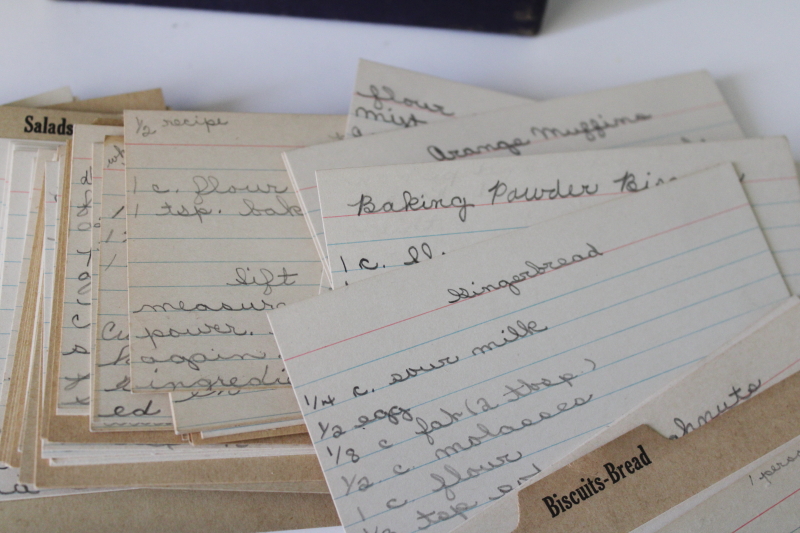 Salads
1/2 recipe
1 c. flour
1 tsp. bak
sift
measure
power.
again.
ingredi
ed
flour
must
Orange Muffins
Baking Powder Bis
1 c. fl.
Gingerbread
1/4 c. sour milk
1/2 egg
1/8 c fat (2 tbsp)
1/2 c. molasses
1 c flour
1/2 tsp
Biscuits-Bread
1 pers